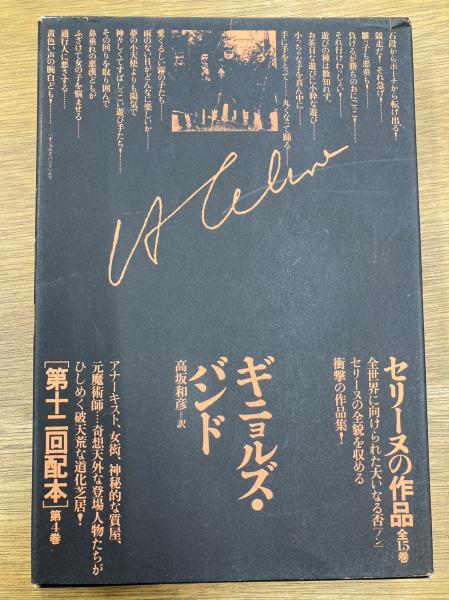 石段からポーチから転げ出る!
競走だ! それ急げ!……
雛っ子も悪童も!……
負けるが勝ちのおにごご!……
それ行けわっしょい!……
遊びの種は数知れず、
お茶目な遊びに小粋な遊び……
小っちゃな子を真ん中に……
手に手をとって……丸くなって踊る……
愛くるしい霧の子たち……
雨のない日がどんなに楽しいか……
夢の小天使よりも陽気で
神々しくてすばしっこい遊び手たち!……
その回りを取り囲んで
鼻垂れの悪漢どもが
ふざけて女の子を悩ませる……
通行人に悪さする……
黄色い声の腕白ども!……
「ギニョルズ・バンド」より
セリーヌの作品 全15巻
全世界に向けられた大いなる否
セリーヌの全貌を収める
衝撃の作品集!
ギニョルズ・
バンド
高坂和彦―訳
アナーキスト、女衒、神秘的な質屋、
元魔術師……奇想天外な登場人物たちが
ひしめく破天荒な道化芝居!
[第十二回配本]第4巻